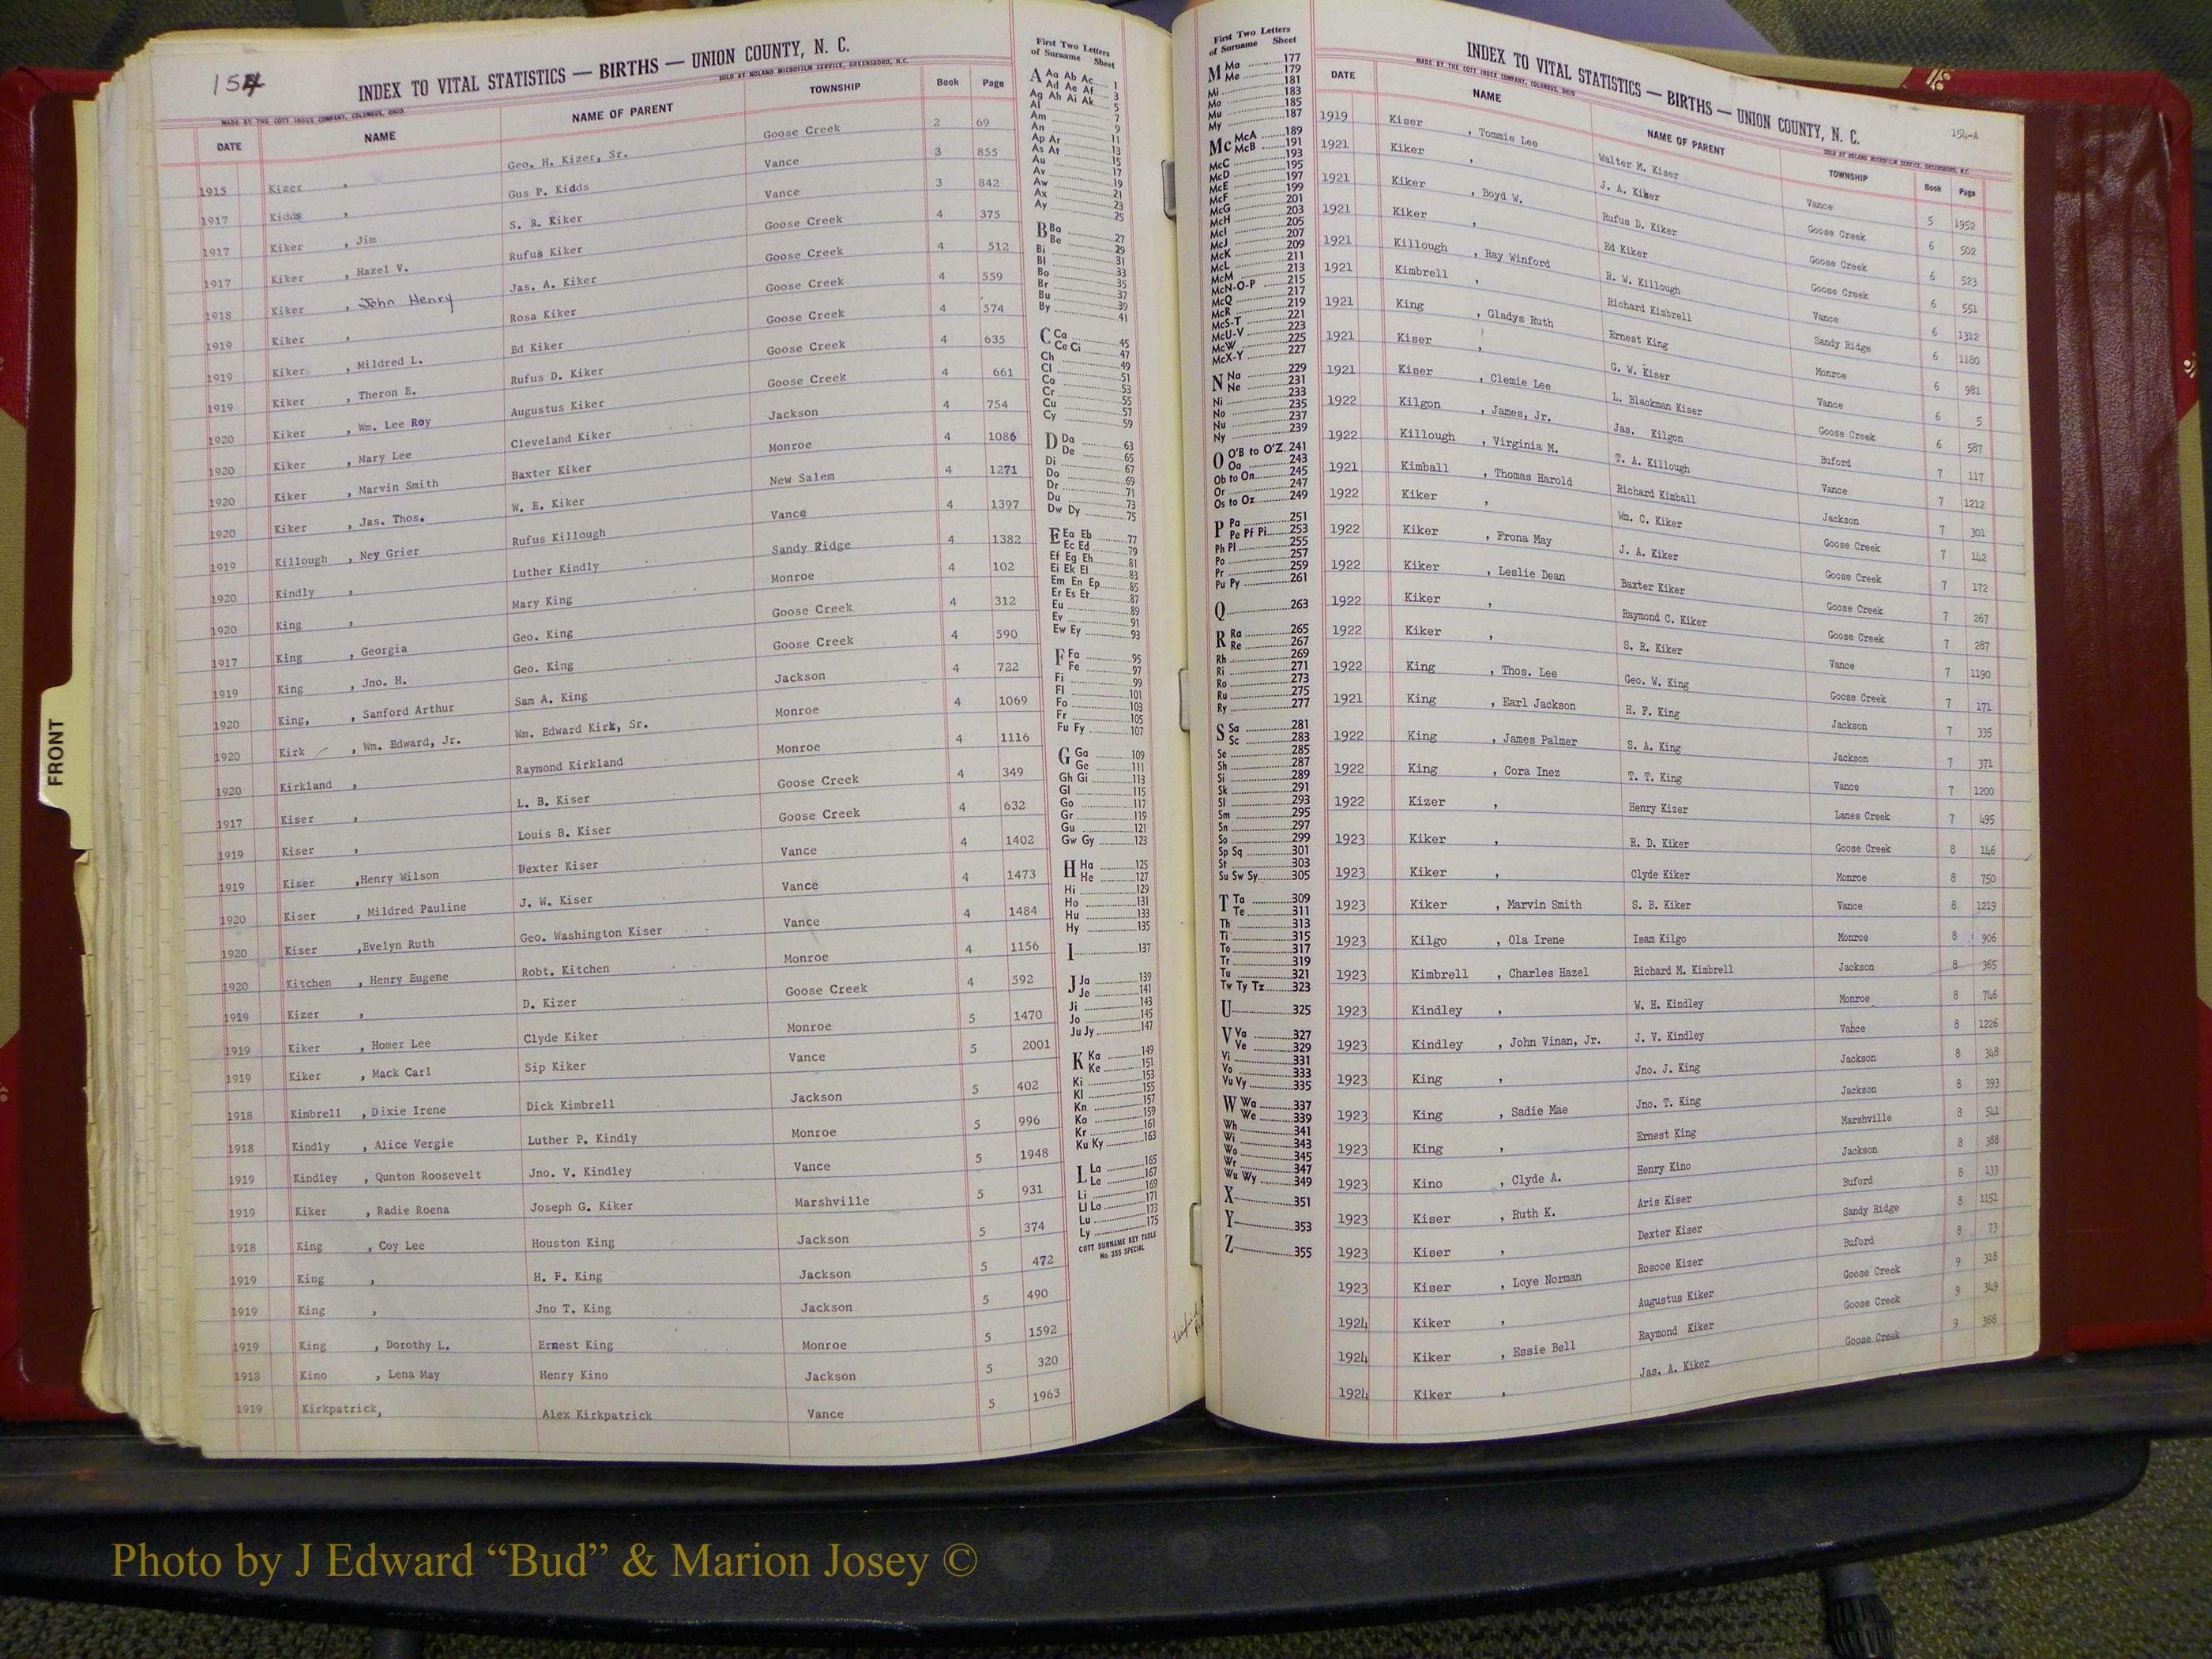 154
INDEX TO VITAL STATISTICS — BIRTHS — UNION COUNTY, N. C.
MADE BY THE COTT INDEX COMPANY, COLUMBUS, OHIO SOLD BY NOLAND MICROFILM SERVICE, GREENSBORO, N.C.
DATE NAME NAME OF PARENT TOWNSHIP Book Page
1915 Kizer , Geo. H. Kizer, Sr. Goose Creek 2 69
1917 Kidds , Gus P. Kidds Vance 3 855
1917 Kiker , Jim S. R. Kiker Vance 3 842
1917 Kiker , Hazel V. Rufus Kiker Goose Creek 4 375
1918 Kiker , John Henry Jas. A. Kiker Goose Creek 4 512
1919 Kiker , Rosa Kiker Goose Creek 4 559
1919 Kiker , Mildred L. Ed Kiker Goose Creek 4 574
1919 Kiker , Theron E. Rufus D. Kiker Goose Creek 4 635
1920 Kiker , Wm. Lee Roy Augustus Kiker Goose Creek 4 661
1920 Kiker , Mary Lee Cleveland Kiker Jackson 4 754
1920 Kiker , Marvin Smith Baxter Kiker Monroe 4 1086
1920 Kiker , Jas. Thos. W. E. Kiker New Salem 4 1271
1919 Killough , Ney Grier Rufus Killough Vance 4 1397
1920 Kindly , Luther Kindly Sandy Ridge 4 1382
1920 King , Mary King Monroe 4 102
1917 King , Georgia Geo. King Goose Creek 4 312
1919 King , Jno. H. Geo. King Goose Creek 4 590
1920 King, , Sanford Arthur Sam A. King Jackson 4 722
1920 Kirk , Wm. Edward, Jr. Wm. Edward Kirk, Sr. Monroe 4 1069
1920 Kirkland , Raymond Kirkland Monroe 4 1116
1917 Kiser , L. B. Kiser Goose Creek 4 349
1919 Kiser , Louis B. Kiser Goose Creek 4 632
1919 Kiser ,Henry Wilson Dexter Kiser Vance 4 1402
1920 Kiser , Mildred Pauline J. W. Kiser Vance 4 1473
1920 Kiser ,Evelyn Ruth Geo. Washington Kiser Vance 4 1484
1920 Kitchen , Henry Eugene Robt. Kitchen Monroe 4 1156
1919 Kizer , D. Kizer Goose Creek 4 592
1919 Kiker , Homer Lee Clyde Kiker Monroe 5 1470
1919 Kiker , Mack Carl Sip Kiker Vance 5 2001
1918 Kimbrell , Dixie Irene Dick Kimbrell Jackson 5 402
1918 Kindly , Alice Vergie Luther P. Kindly Monroe 5 996
1919 Kindley , Qunton Roosevelt Jno. V. Kindley Vance 5 1948
1919 Kiker , Radie Roena Joseph G. Kiker Marshville 5 931
1918 King , Coy Lee Houston King Jackson 5 374
1919 King , H. F. King Jackson 5 472
1919 King , Jno T. King Jackson 5 490
1919 King , Dorothy L. Ernest King Monroe 5 1592
1918 Kino , Lena May Henry Kino Jackson 5 320
1919 Kirkpatrick, Alex Kirkpatrick Vance 5 1963
FRONT
First Two Letters
of Surname Sheet
A Aa Ab Ac 1
Ad Ae Af 3
Ag Ah Ai Ak 5
Al 7
Am 9
An 11
Ap Ar 13
As At 15
Au 17
Av 19
Aw 21
Ax 23
Ay 25
B Ba 27
Be 29
Bi 31
Bl 33
Bo 35
Br 37
Bu 39
By 41
C Ca 45
Ce Ci 47
Ch 49
Cl 51
Co 53
Cr 55
Cu 57
Cy 59
D Da 63
De 65
Di 67
Do 69
Dr 71
Du 73
Dw Dy 75
E Ea Eb 77
Ec Ed 79
Ef Eg Eh 81
Ei Ek El 83
Em En Ep 85
Er Es Et 87
Eu 89
Ev 91
Ew Ey 93
F Fa 95
Fe 97
Fi 99
Fl 101
Fo 103
Fr 105
Fu Fy 107
G Ga 109
Ge 111
Gh Gi 113
Gl 115
Go 117
Gr 119
Gu 121
Gw Gy 123
H Ha 125
He 127
Hi 129
Ho 131
Hu 133
Hy 135
I 137
J Ja 139
Je 141
Ji 143
Jo 145
Ju Jy 147
K Ka 149
Ke 151
Ki 153
Kl 155
Kn 157
Ko 159
Kr 161
Ku Ky 163
L La 165
Le 167
Li 169
Ll Lo 171
Lu 173
Ly 175
COTT SURNAME KEY TABLE
No. 355 SPECIAL
First Two Letters
of Surname Sheet
M Ma 177
Me 179
Mi 181
Mo 183
Mu 185
My 187
Mc McA 189
McB 191
McC 193
McD 195
McE 197
McF 199
McG 201
McH 203
McI 205
McJ 207
McK 209
McL 211
McM 213
McN-O-P 215
McQ 217
McR 219
McS-T 221
McU-V 223
McW 225
McX-Y 227
N Na 229
Ne 231
Ni 233
No 235
Nu 237
Ny 239
O O'B to O'Z 241
Oa 243
Ob to On 245
Or 247
Os to Oz 249
P Pa 251
Pe Pf Pi 253
Ph Pl 255
Po 257
Pr 259
Pu Py 261
Q 263
R Ra 265
Re 267
Rh 269
Ri 271
Ro 273
Ru 275
Ry 277
S Sa 281
Sc 283
Se 285
Sh 287
Si 289
Sk 291
Sl 293
Sm 295
Sn 297
So 299
Sp Sq 301
St 303
Su Sw Sy 305
T Ta 309
Te 311
Th 313
Ti 315
To 317
Tr 319
Tu 321
Tw Ty Tz 323
U 325
V Va 327
Ve 329
Vi 331
Vo 333
Vu Vy 335
W Wa 337
We 339
Wh 341
Wi 343
Wo 345
Wr 347
Wu Wy 349
X 351
Y 353
Z 355
154-A
INDEX TO VITAL STATISTICS — BIRTHS — UNION COUNTY, N. C.
MADE BY THE COTT INDEX COMPANY, COLUMBUS, OHIO SOLD BY NOLAND MICROFILM SERVICE, GREENSBORO, N.C.
DATE NAME NAME OF PARENT TOWNSHIP Book Page
1919 Kiser , Tommie Lee Walter M. Kiser Vance 5 1952
1921 Kiker , J. A. Kiker Goose Creek 6 502
1921 Kiker , Boyd W. Rufus D. Kiker Goose Creek 6 523
1921 Kiker , Ed Kiker Goose Creek 6 551
1921 Killough , Ray Winford R. W. Killough Vance 6 1312
1921 Kimbrell , Richard Kimbrell Sandy Ridge 6 1180
1921 King , Gladys Ruth Ernest King Monroe 6 981
1921 Kiser , G. W. Kiser Vance 6 5
1921 Kiser , Clemie Lee L. Blackman Kiser Goose Creek 6 587
1922 Kilgon , James, Jr. Jas. Kilgon Buford 7 117
1922 Killough , Virginia M. T. A. Killough Vance 7 1212
1921 Kimball , Thomas Harold Richard Kimball Jackson 7 301
1922 Kiker , Wm. C. Kiker Goose Creek 7 142
1922 Kiker , Frona May J. A. Kiker Goose Creek 7 172
1922 Kiker , Leslie Dean Baxter Kiker Goose Creek 7 267
1922 Kiker , Raymond C. Kiker Goose Creek 7 287
1922 Kiker , S. R. Kiker Vance 7 1190
1922 King , Thos. Lee Geo. W. King Goose Creek 7 171
1921 King , Earl Jackson H. F. King Jackson 7 335
1922 King , James Palmer S. A. King Jackson 7 371
1922 King , Cora Inez T. T. King Vance 7 1200
1922 Kizer , Henry Kizer Lanes Creek 7 495
1923 Kiker , R. D. Kiker Goose Creek 8 146
1923 Kiker , Clyde Kiker Monroe 8 750
1923 Kiker , Marvin Smith S. B. Kiker Vance 8 1219
1923 Kilgo , Ola Irene Isam Kilgo Monroe 8 906
1923 Kimbrell , Charles Hazel Richard M. Kimbrell Jackson 8 365
1923 Kindley , W. H. Kindley Monroe 8 746
1923 Kindley , John Vinan, Jr. J. V. Kindley Vance 8 1226
1923 King , Jno. J. King Jackson 8 348
1923 King , Sadie Mae Jno. T. King Jackson 8 393
1923 King , Ernest King Marshville 8 541
1923 Kino , Clyde A. Henry Kino Jackson 8 388
1923 Kiser , Ruth K. Aris Kiser Buford 8 133
1923 Kiser , Dexter Kiser Sandy Ridge 8 1151
1923 Kiser , Loye Norman Roscoe Kizer Buford 8 73
1924 Kiker , Augustus Kiker Goose Creek 9 318
1924 Kiker , Essie Bell Raymond Kiker Goose Creek 9 349
1924 Kiker , Jas. A. Kiker Goose Creek 9 368
Photo by J Edward “Bud” & Marion Josey ©